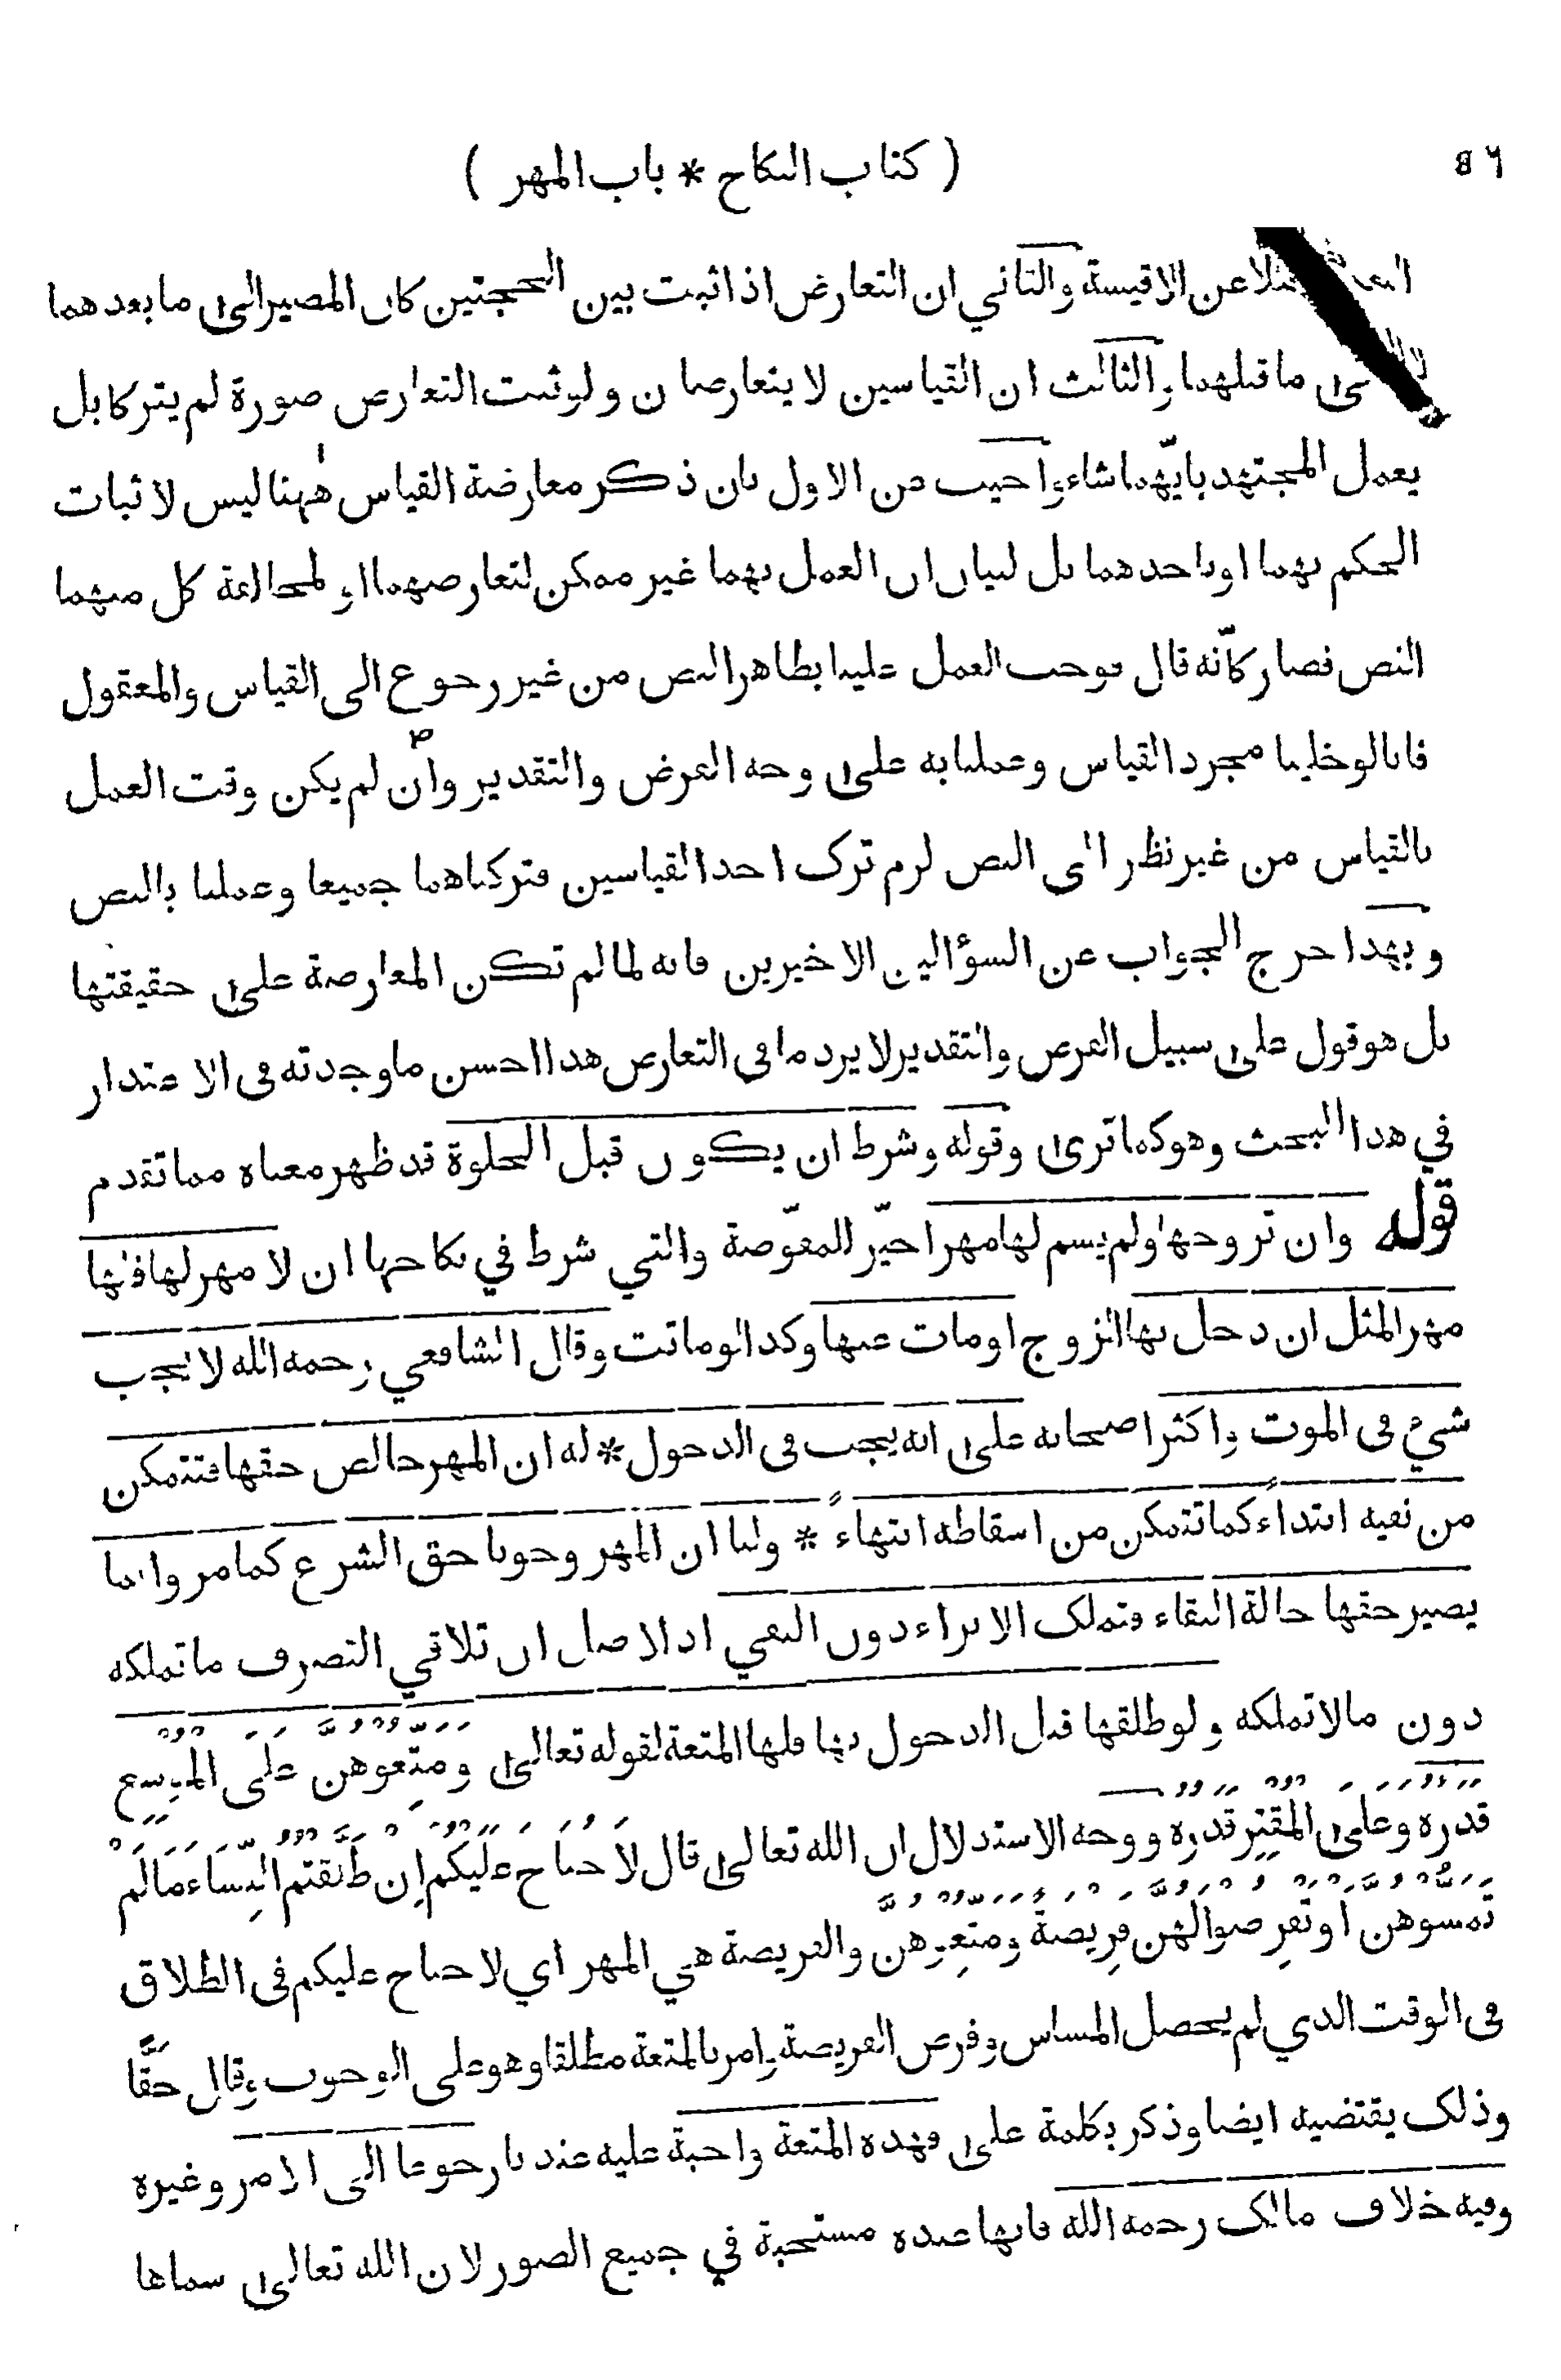 ( كتاب النكاح * باب المهر )
فضلا عن الاقيسة والثاني ان التعارض اذا ثبت بين الحجتين كان المصير الى ما بعدهما
ما قبلهما والثالث ان القياسين لا يتعارضان ولو ثبت التعارض صورة لم يتركا بل
يعمل المجتهد بايّهما شاء واجيب عن الاول بان ذكر معارضة القياس ههنا ليس لاثبات
الحكم بهما او باحدهما بل لبيان ان العمل بهما غير ممكن لتعارضهما او لمخالفة كل منهما
النص فصار كانّه قال فوجب العمل علينا بظاهر النص من غير رجوع الى القياس والمعقول
فانا لو خلينا مجرد القياس وعملنا به على وجه الفرض والتقدير وان لم يكن وقت العمل
بالقياس من غير نظر الى النص لزم ترك احد القياسين فتركناهما جميعا وعملنا بالنص
وبهذا خرج الجواب عن السؤالين الاخيرين فانه لما لم تكن المعارضة على حقيقتها
بل هو قول على سبيل الفرض والتقدير لا يرد ما في التعارض هذا احسن ما وجدته في الاعتذار
في هذا البحث وهو كما ترى وقوله وشرط ان يكون قبل الخلوة قد ظهر معناه مما تقدم
قوله وان تزوجها ولم يسم لها مهرا خيّر للمفوّضة والتي شرط في نكاحها ان لا مهر لها فلها
مهر المثل ان دخل بها الزوج او مات عنها وكذا لو ماتت وقال الشافعي رحمه الله لا يجب
شيء في الموت واكثر اصحابه على انه يجب في الدخول * له ان المهر خالص حقها فتتمكن
من نفيه ابتداءً كما تتمكن من اسقاطه انتهاءً * ولنا ان المهر وجوبا حق الشرع كما مر وانما
يصير حقها حالة البقاء فتملك الابراء دون النفي اذ الاصل ان تلاقي التصرف ما تملكه
دون مالا تملكه ولو طلقها قبل الدخول بها فلها المتعة لقوله تعالى وَمَتِّعُوْهُنَّ عَلَى الْمُوْسِعِ
قَدَرُهٗ وَعَلَى الْمُقْتِرِ قَدَرُهٗ ووجه الاستدلال ان الله تعالى قال لَا جُنَاحَ عَلَيْكُمْ اِنْ طَلَّقْتُمُ النِّسَاءَ مَالَمْ
تَمَسُّوْهُنَّ اَوْ تَفْرِضُوْا لَهُنَّ فَرِيْضَةً وَمَتِّعُوْهُنَّ والفريضة هي المهر اي لا جناح عليكم في الطلاق
في الوقت الذي لم يحصل المساس وفرض الفريضة وامر بالمتعة مطلقا وهو على الوجوب وقال حَقًّا
وذلك يقتضيه ايضا وذكر بكلمة على فهذه المتعة واجبة عليه عندنا رجوعا الى الامر وغيره
وفيه خلاف مالك رحمه الله فانها عنده مستحبة في جميع الصور لان الله تعالى سماها